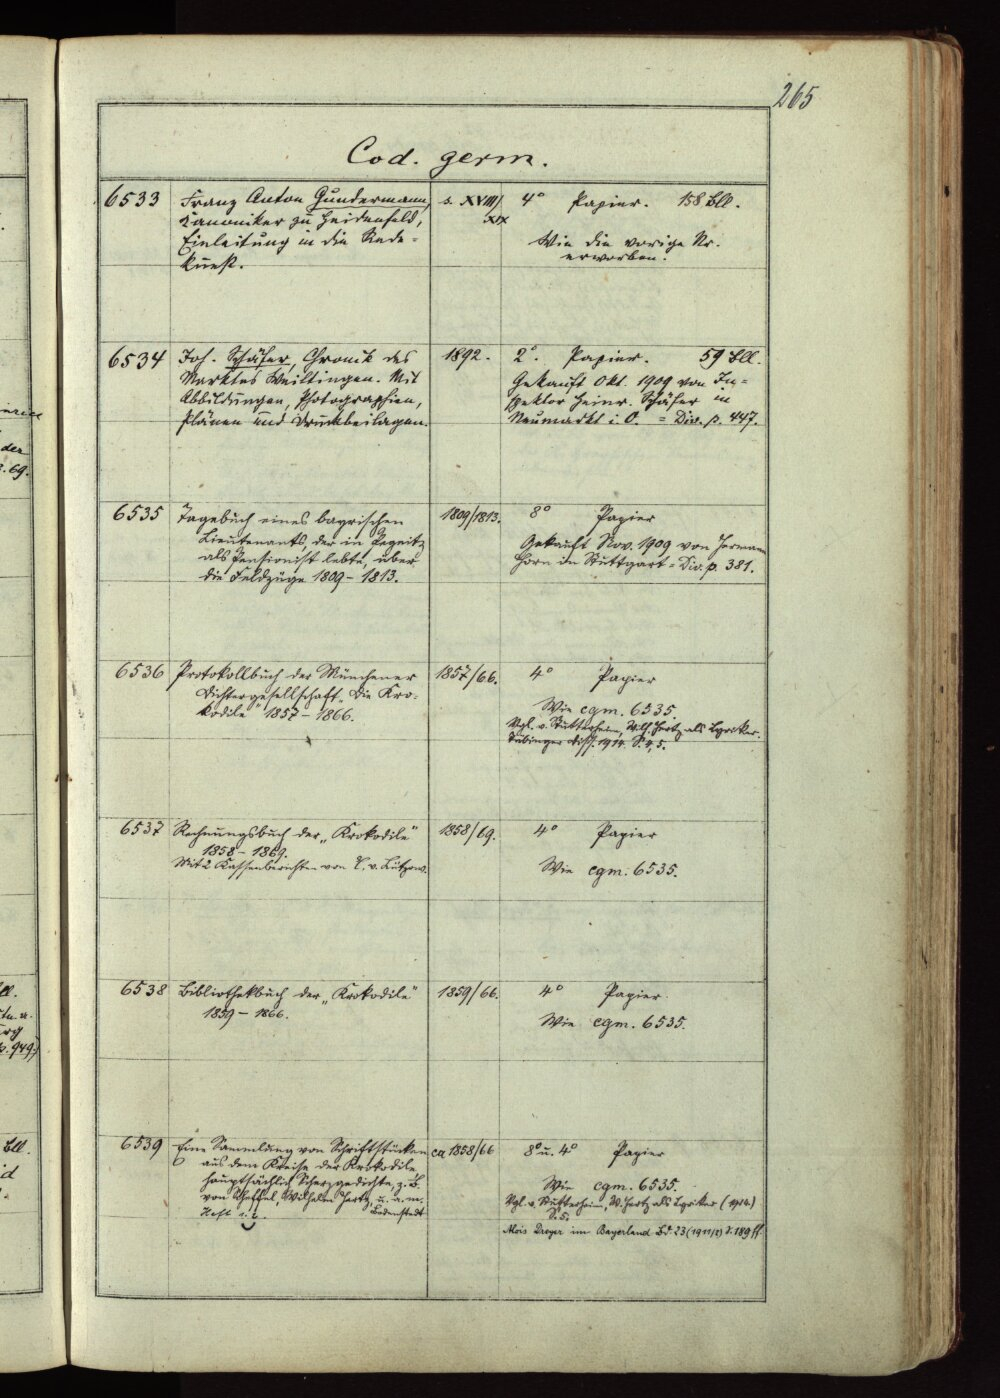 265
Cod. germ.
6533
Franz Anton Gundermann,
Kanoniker zu Heidenfeld,
Einleitung in die Rede-
kunst.
s. XVIII/
XIX
4° Papier. 158 Bll.
Wie die vorige Nr.
erworben.
6534
Joh. Schäfer, Chronik des
Marktes Weiltingen. Mit
Abbildungen, Photographien,
Plänen und Druckbeilagen.
1892.
2°. Papier. 59 Bll.
Gekauft Okt. 1909 von In-
spektor Heinr. Schäfer in
Neumarkt i. O. = Div. p. 447.
6535
Tagebuch eines bayrischen
Lieutenants, der in Pegnitz
als Pensionist lebte, über
die Feldzüge 1809 – 1813.
1809/1813.
8° Papier
Gekauft Nov. 1909 von Hermann
Horn in Stuttgart = Div. p. 381.
6536
Protokollbuch der Münchener
Dichtergesellschaft „Die Kro-
kodile“ 1857 – 1866.
1857/66.
4° Papier
Wie cgm. 6535.
Vgl. v. Stutterheim, Wilh. Hertz als Lyriker.
Tübinger Diss. 1914. S. 4, 5.
6537
Rechnungsbuch der „Krokodile“
1858 – 1869.
Mit 2 Kassenberichten von C. v. Lützow.
1858/69.
4° Papier
Wie cgm. 6535.
6538
Bibliothekbuch der „Krokodile“
1859 – 1866.
1859/66.
4° Papier.
Wie cgm. 6535.
6539
Eine Sammlung von Schriftstücken
aus dem Kreise der Krokodile,
hauptsächlich Scherzgedichte, z. B.
von Scheffel, Wilhelm Hertz, u. a. m.
Bodenstedt
Heft 1. 2.
ca 1858/66
8° u. 4° Papier
Wie cgm. 6535.
Vgl. v. Stutterheim, W. Hertz als Lyriker (1914)
S. 5.
Alois Dreyer im Bayerland Bd. 23 (1911/2) S. 189 ff.
der
p. 949
Bll.